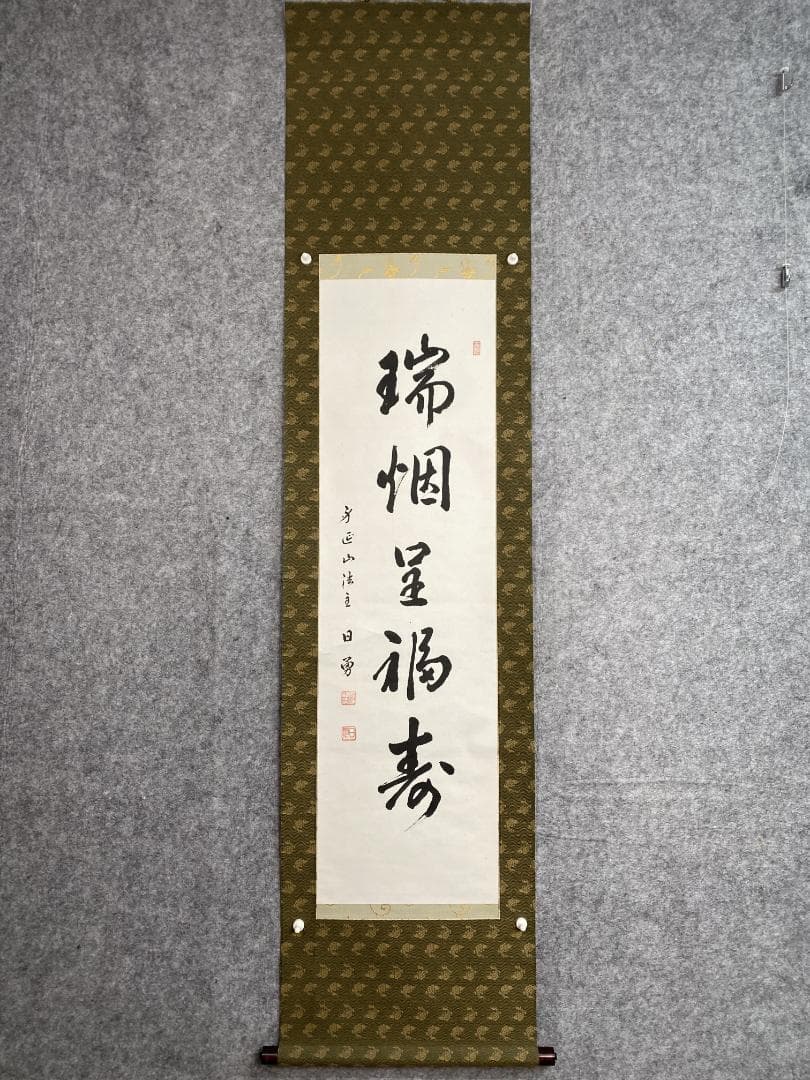 瑞烟呈福寿
身延山法主 日勇